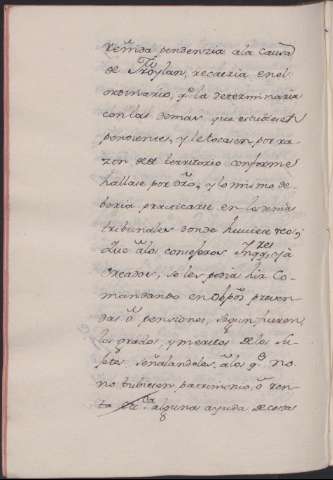 remĩda pendenzia ala Causa
de Froylan, recaeria en el
ordinario, q.e la determinaria
con las demas que estubiesen
pendientes, y le tocasen, por ra
zon del territorio conforme
hallase por dro, y lo mismo de-
beria practicarse en los mas
tribunales donde huviere reos;
Que a los consejeros Inqq.res ya
creados, se les podia hir Co-
mendando en Obpos, preven
das o pensiones, segun fueren
los grados, y meritos de los Su-
getos, señalandoles, a los q.e no
no tubiesen patrimonio, o ren-
ta alguna ayuda de costa